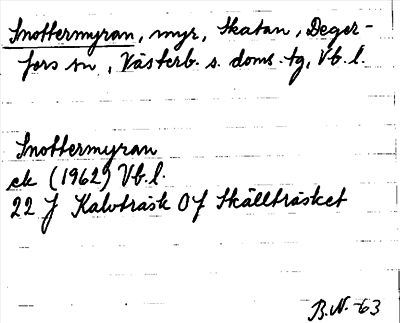 Snottermyran, myr, Skatan, Deger-
fors sn, Västerb. s. doms. tg, Vb. l.
Snottermyran
ek (1962) Vb. l.
22 J Kalvträsk 0 f Skällträsket
B.N. -63